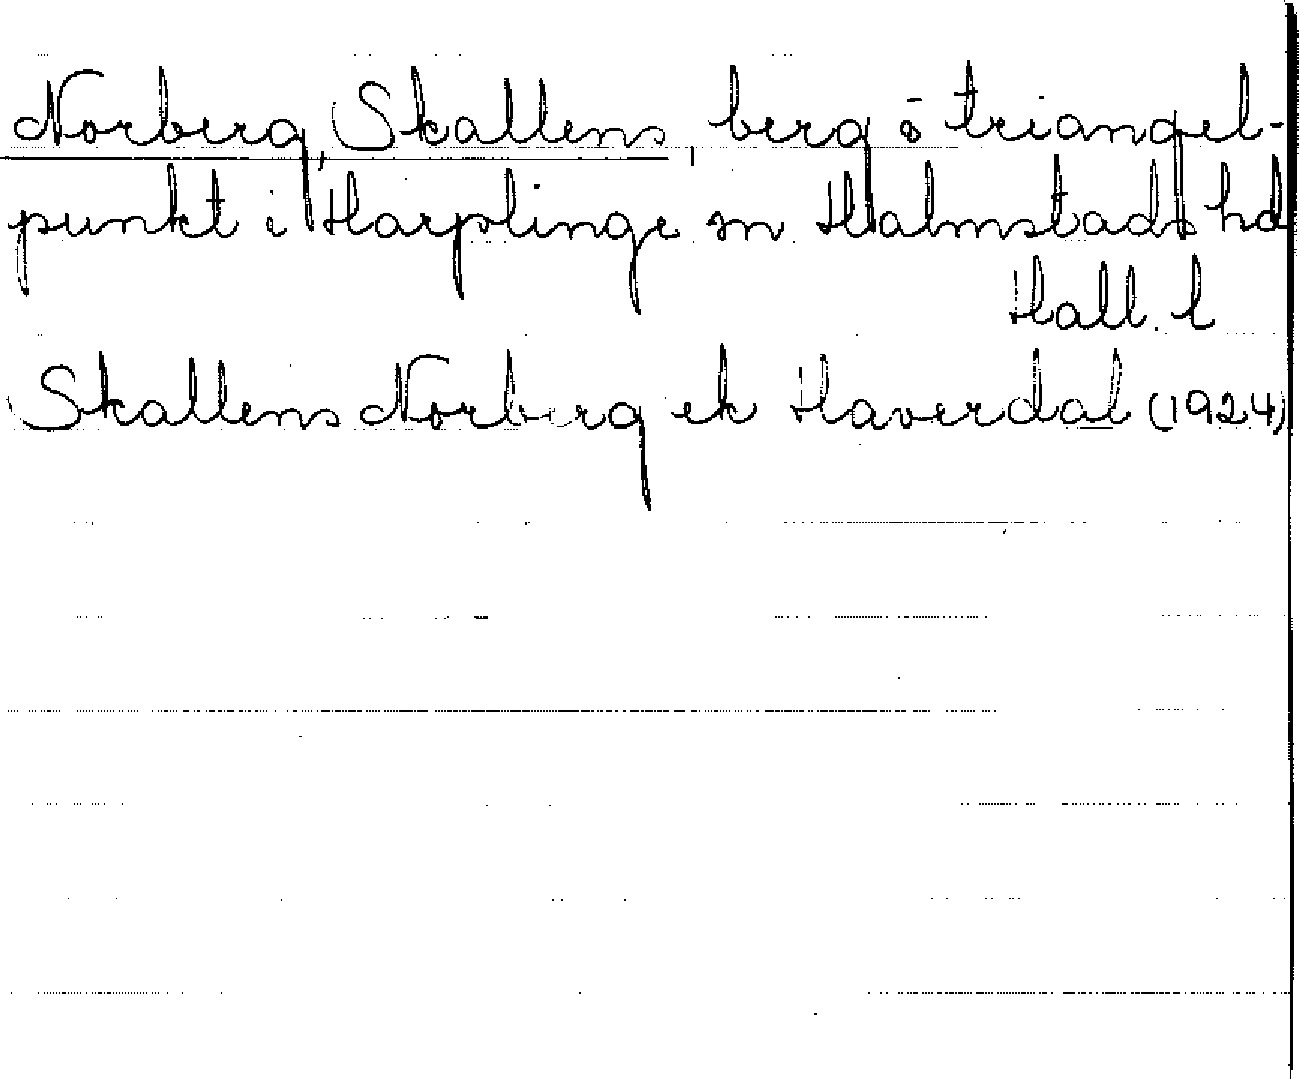 Norberg, Skallens, berg o triangel-
punkt i Harplinge sn Halmstads hd
Hall. l
Skallens Norberg ek Haverdal (1924)